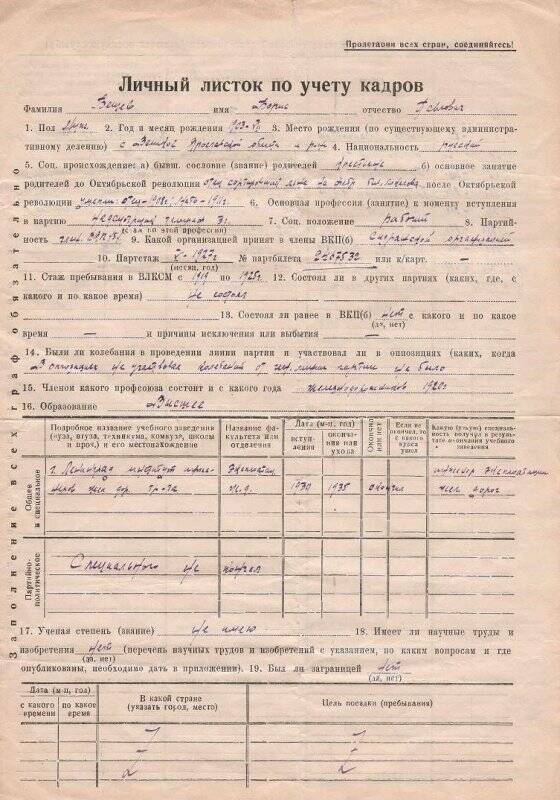 Пролетарии всех стран, соединяйтесь!
Личный листок по учету кадров
Фамилия Вещев имя Борис отчество Павлович
1. Пол муж. 2. Год и месяц рождения 903-VII 3. Место рождения (по существующему администра-
тивному делению) с Вощиков Ярославской области и р-на 4. Национальность русский
5. Соц. происхождение: а) бывш. сословие (звание) родителей крестьяне б) основное занятие
родителей до Октябрьской революции отец сортировщик на фабр. после Октябрьской
революции умерли: отец-1908г. 6. Основная профессия (занятие) к моменту вступления
в партию 3г. 7. Соц. положение рабочий 8. Партий-
(стаж по этой профессии)
ность член ВКП(б) 9. Какой организацией принят в члены ВКП(б) организацией
10. Партстаж X-1927г № партбилета 2267532 или к/карт. —
(месяц, год)
11. Стаж пребывания в ВЛКСМ с 1919 по 1925г. 12. Состоял ли в других партиях (каких, где, с
какого и по какое время) не состоял
13. Состоял ли ранее в ВКП(б) нет с какого и по какое
(да, нет)
время — и причины исключения или выбытия —
14. Были ли колебания в проведении линии партии и участвовал ли в оппозициях (каких, когда
В оппозициях не участвовал колебаний от ген. линии партии не было
15. Членом какого профсоюза состоит и с какого года железнодорожников 1920г
16. Образование Высшее
Заполнение всех граф обязательно
Общее и специальное
Подробное название учебного заведения (вуза, втуза, техникума, комвуза, школы и проч.) и его местонахождение
Название факультета или отделения
Дата (м-ц, год)
вступления
окончания или ухода
Окончил или нет
Если не окончил, то с какого курса ушел
Какую (узкую) специальность получил в результате окончания учебного заведения
г. Ленинград институт инже- Эксплоатац. инженер эксплоатации
неров жел дор. тр-та ж.д. 1930 1935 окончил жел дорог
Партийно-политическое
Специального не кончал
17. Ученая степень (звание) не имею 18. Имеет ли научные труды и
изобретения нет (перечень научных трудов и изобретений с указанием, по каким вопросам и где
(да, нет)
опубликованы, необходимо дать в приложении). 19. Был ли заграницей нет
(да, нет)
Дата (м-ц, год)
с какого времени
по какое время
В какой стране (указать город, место)
Цель поездки (пребывания)